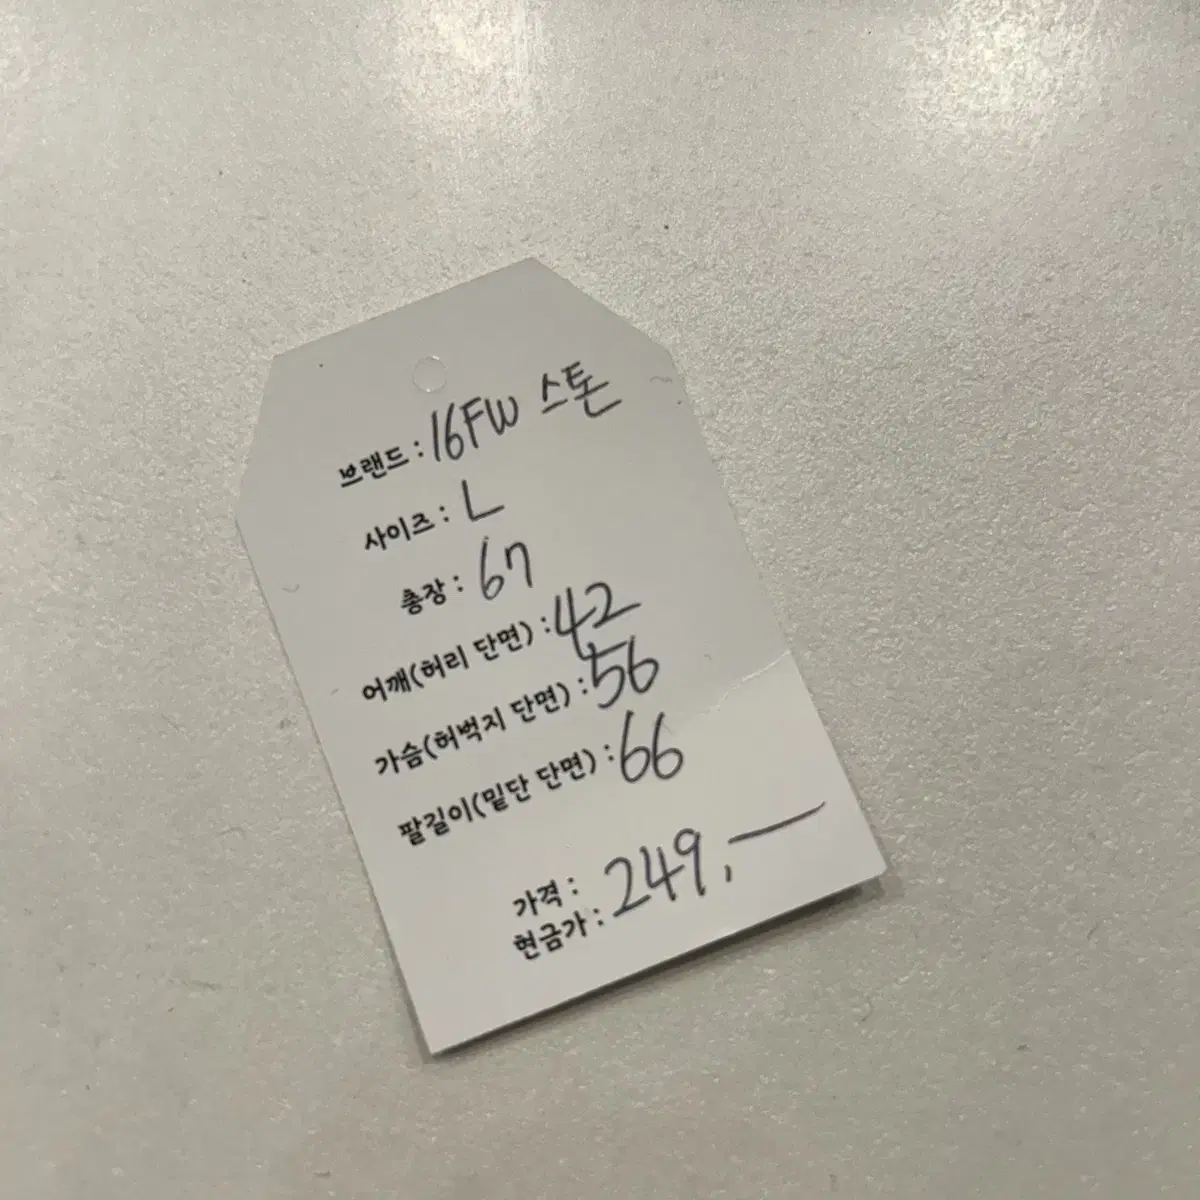 브랜드 : 16FW 스톤
사이즈 : L
총장 : 67
어깨(허리 단면) : 42
가슴(허벅지 단면) : 56
팔길이(밑단 단면) : 66
가격 :
현금가 : 249,—